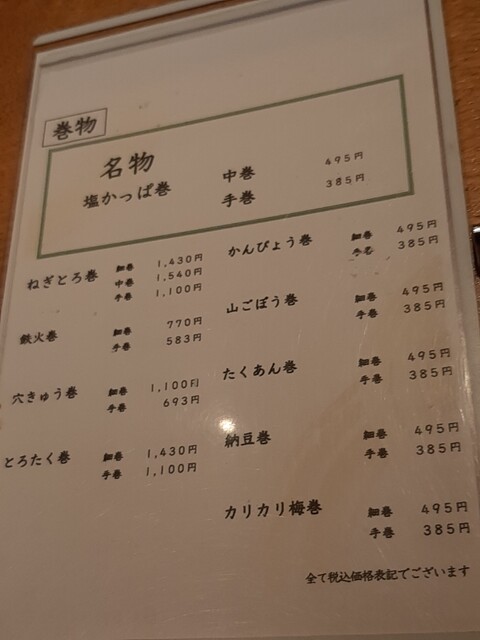 巻物
名物
塩かっぱ巻 中巻 495円
手巻 385円
ねぎとろ巻 細巻 1,430円
中巻 1,540円
手巻 1,100円
鉄火巻 細巻 770円
手巻 583円
穴きゅう巻 細巻 1,100円
手巻 693円
とろたく巻 細巻 1,430円
手巻 1,100円
かんぴょう巻 細巻 495円
手巻 385円
山ごぼう巻 細巻 495円
手巻 385円
たくあん巻 細巻 495円
手巻 385円
納豆巻 細巻 495円
手巻 385円
カリカリ梅巻 細巻 495円
手巻 385円
全て税込価格表記でございます